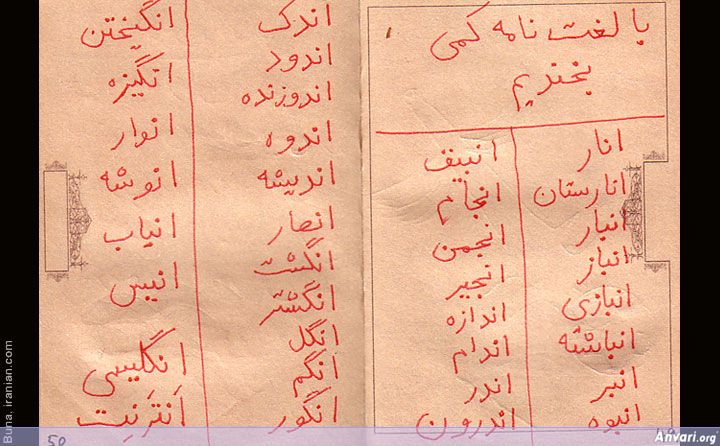 با لغت نامه کمی
بخندیم
انار
انارستان
انبار
انباز
انبازی
انباشته
انبر
انبوه
انبیق
انجام
انجمن
انجیر
اندازه
اندام
اندر
اندرون
اندک
اندود
اندوزنده
اندوه
اندیشه
انصار
انگشت
انگشتر
انگل
انگم
انگور
انگیختن
انگیزه
انوار
انوشه
انیاب
انیس
انگلیسی
اَنتَرنِت
50
Buna. iranian.com
Anvari.org